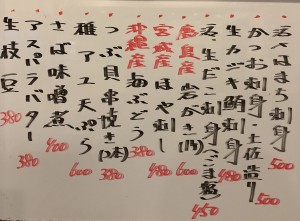 活はまち刺身 500
かつお刺身 土佐造り 500
生カツオ鮪刺身 480
活生だこ刺身(ごま塩) 450
広島産 岩がき(1ケ) 600
宮城産 ほや刺し 480
沖縄産 海ぶどう 380
つぶ貝串焼き(2本) 380
稚アユ天ぷら 600
さば味噌煮 400
アスパラバター 380
生枝豆 380